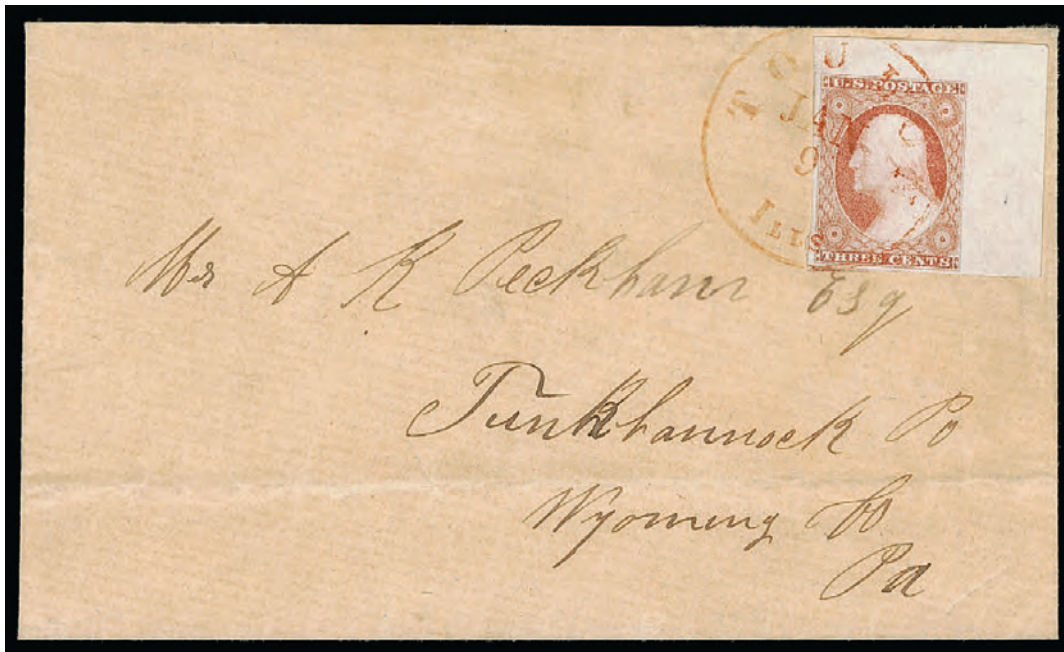 TOULO
JAN
9
ILLS
U.S. POSTAGE
THREE CENTS
Mr A K Peckham Esq
Tunkhannock Po
Wyoming Co
Pa